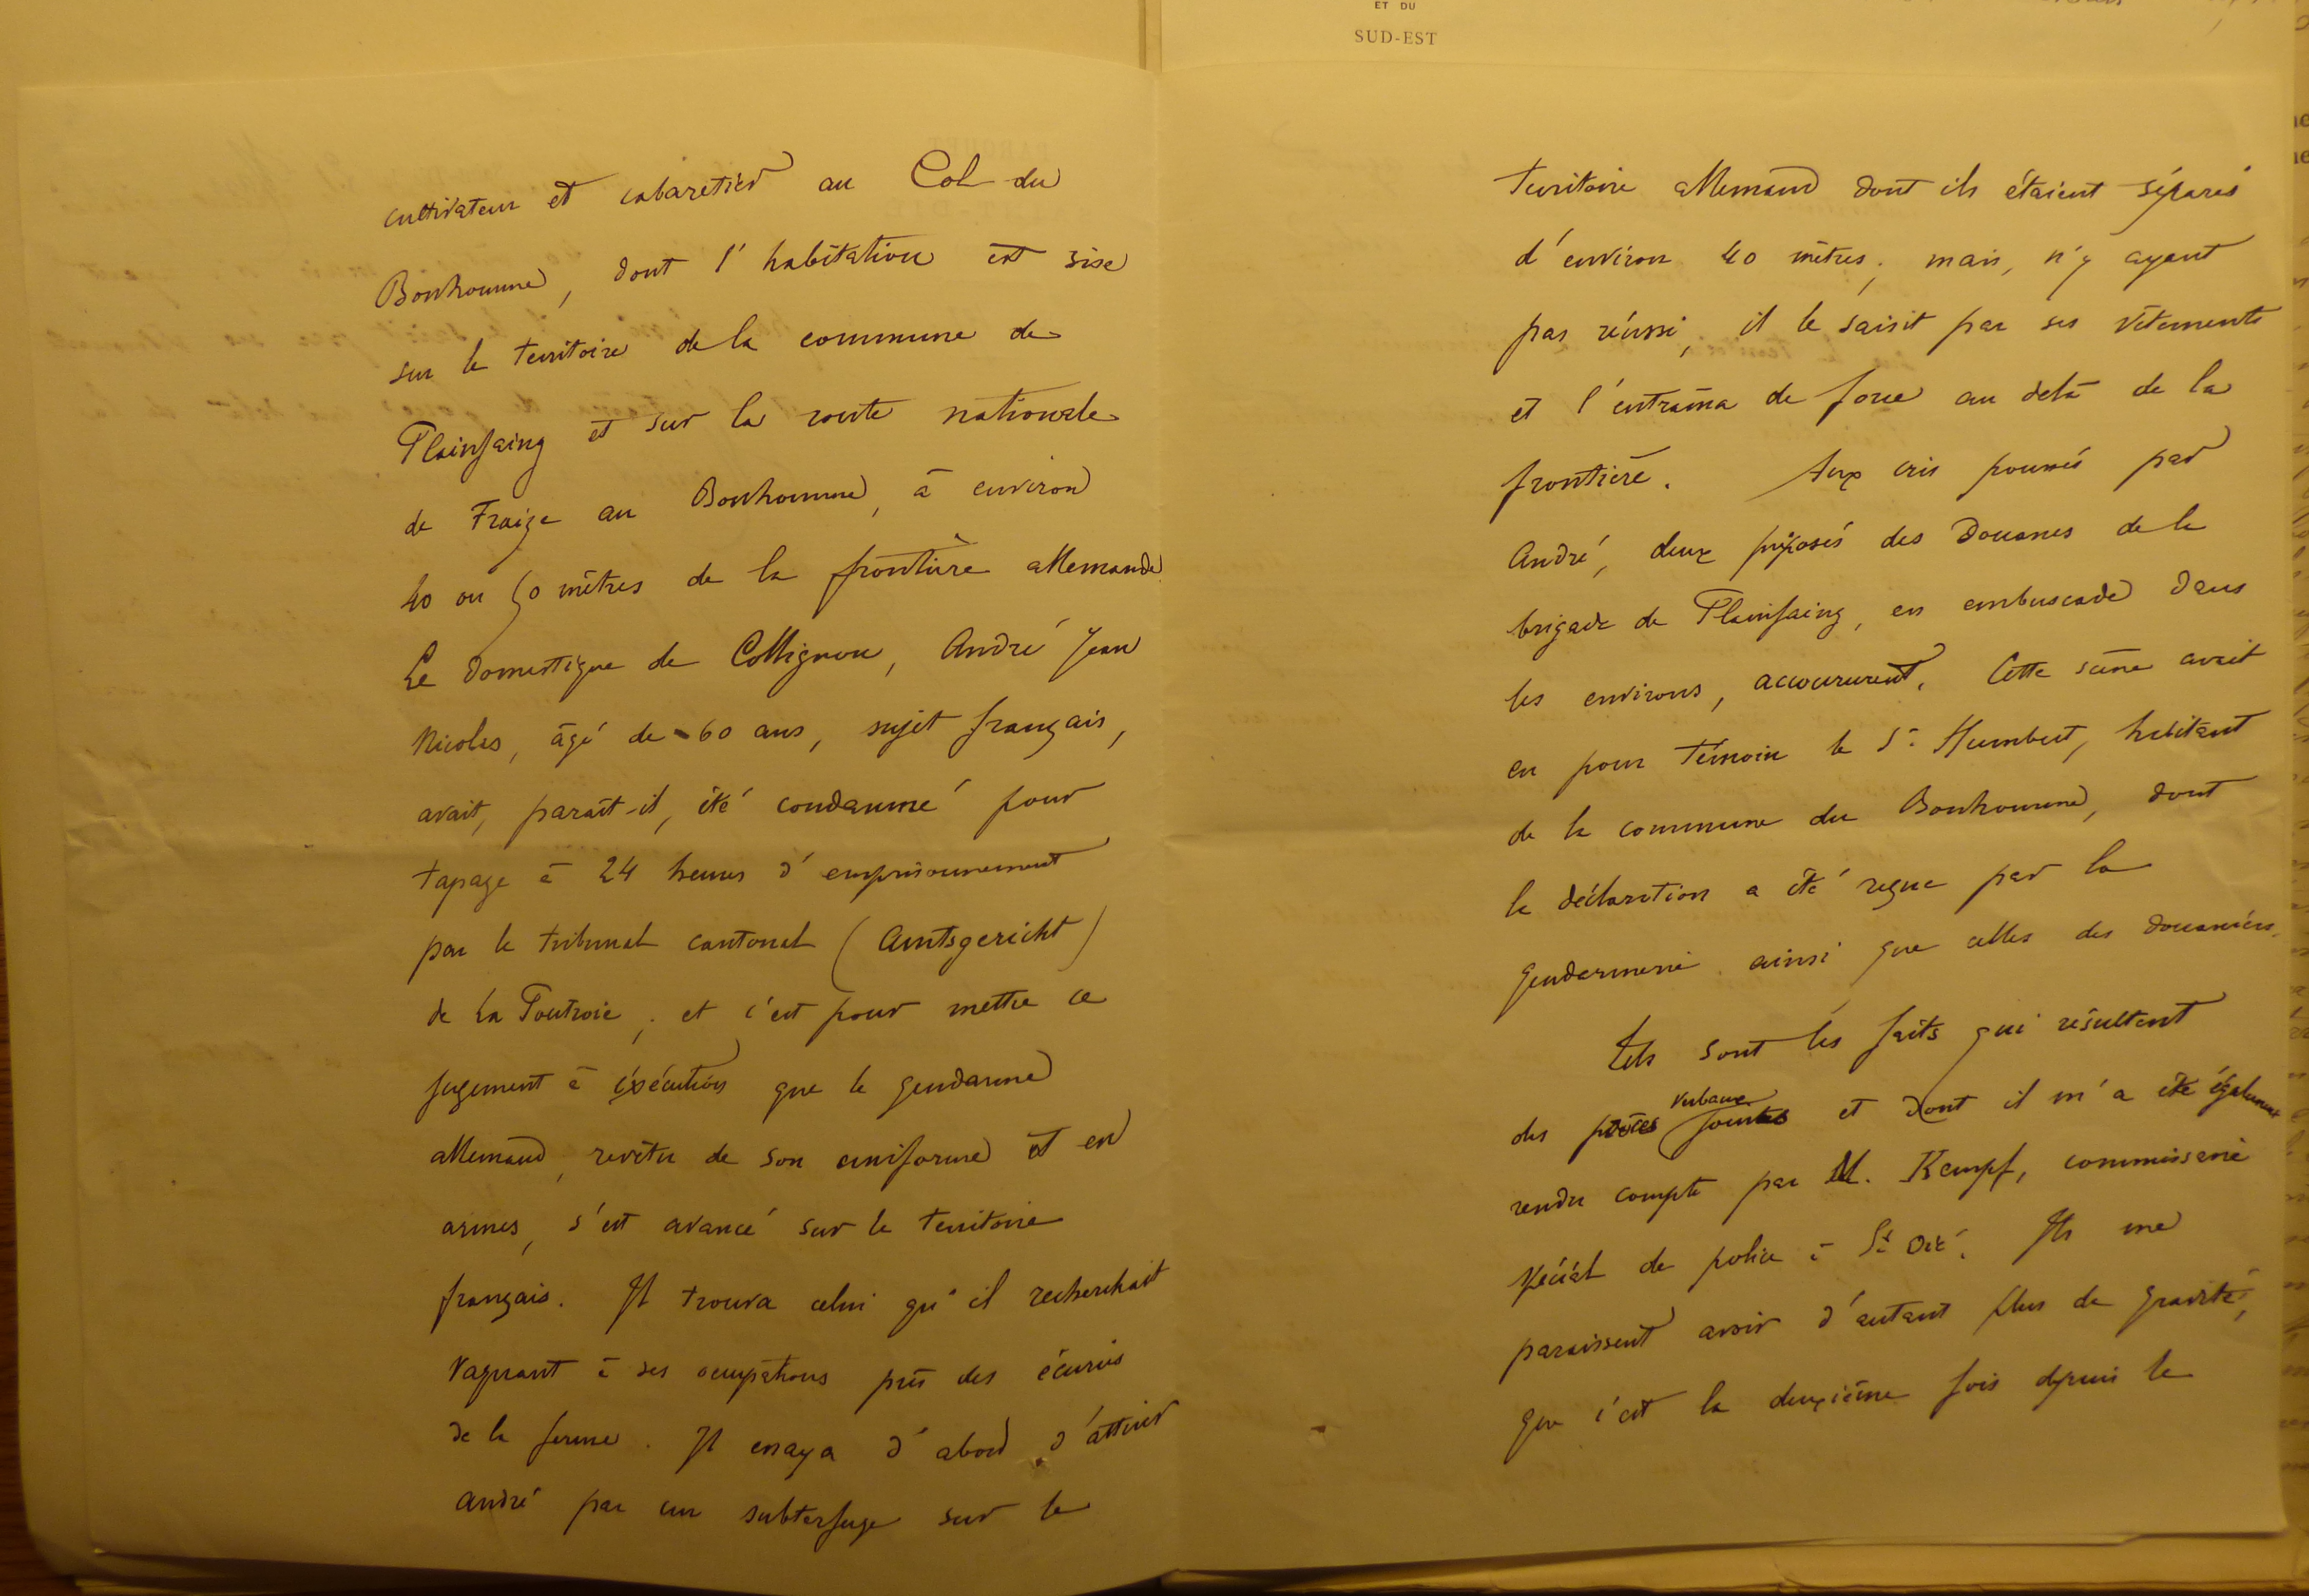 ET DU
SUD-EST
cultivateur et cabaretier au Col du
Bonhomme, dont l'habitation est sise
sur le territoire de la commune de
Plainfaing et sur la route nationale
de Fraize au Bonhomme, à environ
40 ou 50 mètres de la frontière allemande.
Le domestique de Collignon, André Jean
Nicolas, âgé de 60 ans, sujet français,
avait, paraît-il, été condamné pour
tapage à 24 heures d'emprisonnement
par le tribunal cantonal (Amtsgericht)
de La Poutroie ; et c'est pour mettre ce
jugement à éxécution que le gendarme
allemand, revêtu de son uniforme et en
armes, s'est avancé sur le territoire
français. Il trouva celui qu'il recherchait
vaquant à ses occupations près des écuries
de la ferme. Il essaya d'abord d'attirer
André par un subterfuge sur le
territoire allemand dont ils étaient séparés
d'environ 40 mètres ; mais, n'y ayant
pas réussi, il le saisit par ses vêtements
et l'entraîna de force au delà de la
frontière. Aux cris poussés par
André, deux préposés des Douanes de la
brigade de Plainfaing, en embuscade dans
les environs, accoururent. Cette scène avait
eu pour témoin le Sr Humbert, habitant
de la commune du Bonhomme, dont
la déclaration a été reçue par la
gendarmerie ainsi que celles des douaniers.
Tels sont les faits qui résultent
des procès verbaux joints et dont il m'a été également
rendu compte par M. Kempf, commissaire
spécial de police à St Dié. Ils me
paraissent avoir d'autant plus de gravité,
que c'est la deuxième fois depuis le